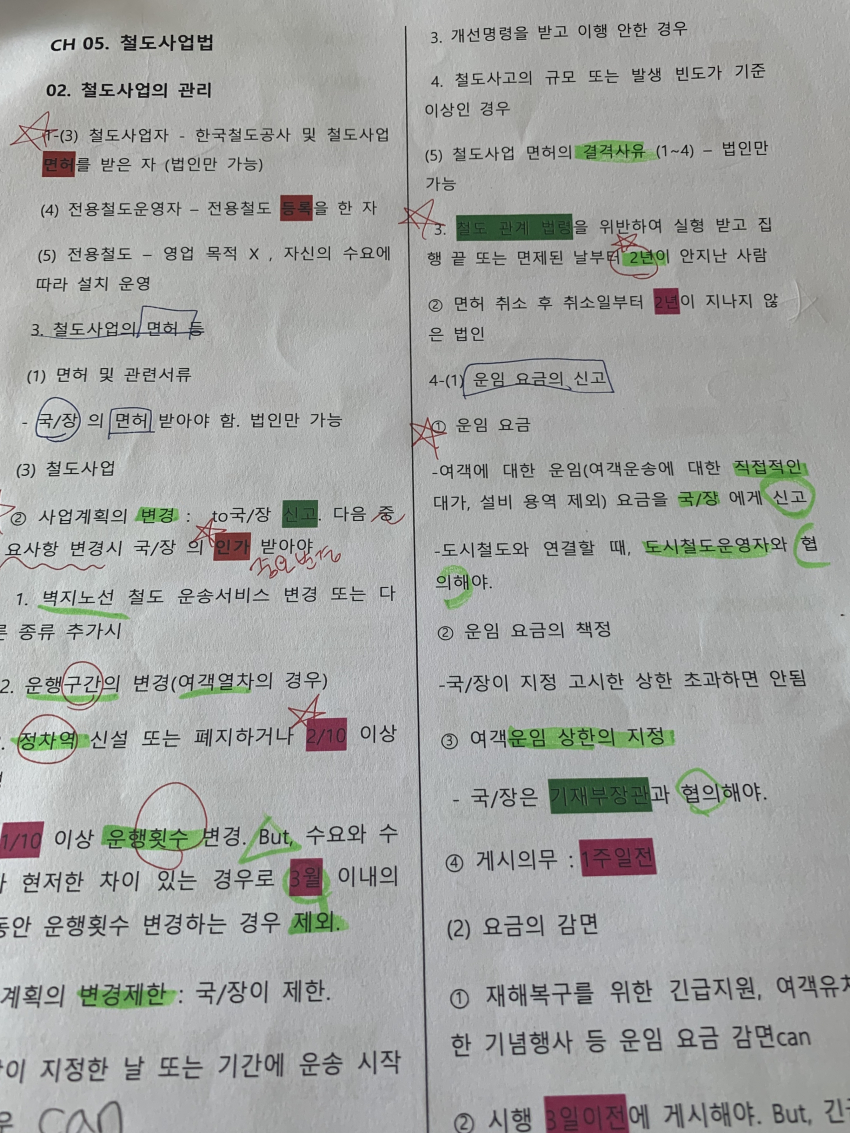 CH 05. 철도사업법
02. 철도사업의 관리
1-(3) 철도사업자 - 한국철도공사 및 철도사업
면허를 받은 자 (법인만 가능)
(4) 전용철도운영자 – 전용철도 등록을 한 자
(5) 전용철도 – 영업 목적 X , 자신의 수요에
따라 설치 운영
3. 철도사업의 면허 등
(1) 면허 및 관련서류
- 국/장 의 면허 받아야 함. 법인만 가능
(3) 철도사업
② 사업계획의 변경 : to국/장 신고. 다음 중
요사항 변경시 국/장 의 인가 받아야
중요변경
1. 벽지노선 철도 운송서비스 변경 또는 다
른 종류 추가시
2. 운행구간의 변경(여객열차의 경우)
정차역 신설 또는 폐지하거나 2/10 이상
1/10 이상 운행횟수 변경. But, 수요와 수
현저한 차이 있는 경우로 3월 이내의
동안 운행횟수 변경하는 경우 제외.
계획의 변경제한 : 국/장이 제한.
이 지정한 날 또는 기간에 운송 시작
can
3. 개선명령을 받고 이행 안한 경우
4. 철도사고의 규모 또는 발생 빈도가 기준
이상인 경우
(5) 철도사업 면허의 결격사유 (1~4) – 법인만
가능
3. 철도 관계 법령을 위반하여 실형 받고 집
행 끝 또는 면제된 날부터 2년이 안지난 사람
② 면허 취소 후 취소일부터 2년이 지나지 않
은 법인
4-(1) 운임 요금의 신고
① 운임 요금
-여객에 대한 운임(여객운송에 대한 직접적인
대가, 설비 용역 제외) 요금을 국/장 에게 신고
-도시철도와 연결할 때, 도시철도운영자와 협
의해야.
② 운임 요금의 책정
-국/장이 지정 고시한 상한 초과하면 안됨
③ 여객운임 상한의 지정
- 국/장은 기재부장관과 협의해야.
④ 게시의무 : 1주일전
(2) 요금의 감면
① 재해복구를 위한 긴급지원, 여객유치
한 기념행사 등 운임 요금 감면can
② 시행 3일이전에 게시해야. But, 긴급